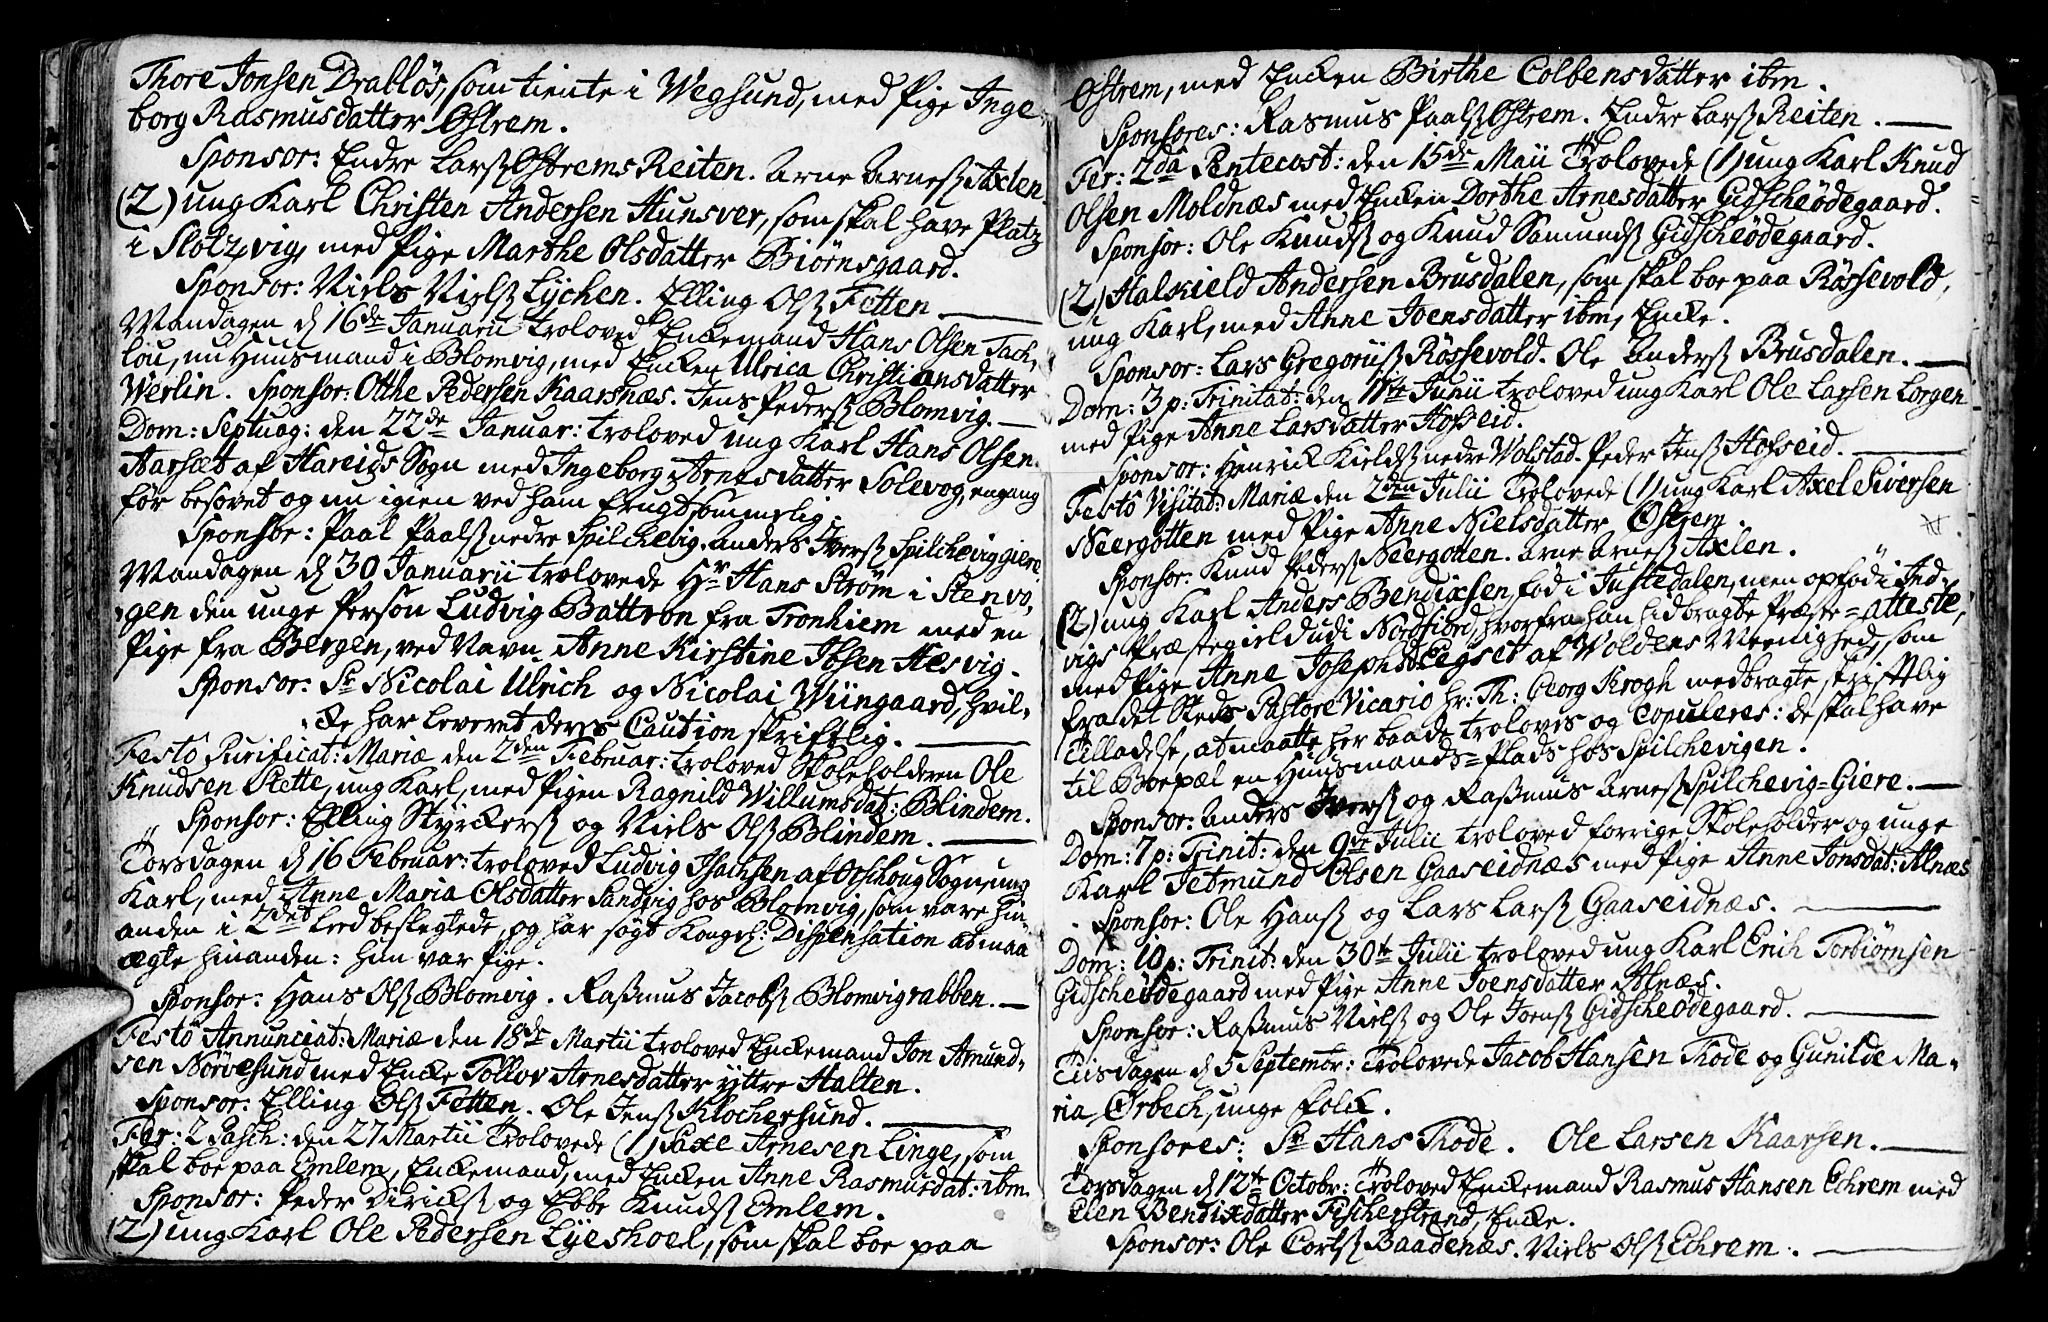 Thore Jonsen Drabløs, som tiente i Wegsund, med Pige Inge-
borg Rasmusdatter Østrem.
Sponsor: Endre Larsß Østrems Reiten. Arne Arnesß Axlen.
(2) ung Karl Christen Andersen Hunsver, som skal have Platz
i Slotzvig, med Pige Marthe Olsdatter Biørnsgaard.
Sponsor: Niels Nielsß Lÿchen. Elling Olsß Fetten
Mandagen d 16de Januarii troloved Enckemand Hans Olsen Tach,
lou, nu Huusmand i Blomvig, med Encken Ulrica Christiansdatter
Werlin. Sponsor: Otthe Pedersen Kaarsnæs. Jens Pedersß Blomvig.
Dom: Septuag: den 22de Januar: troloved ung Karl Hans Olsen
Aarsæt af Hareids Sogn med Ingeborg Arnesdatter Solevog, engang
før besovet og nu igien ved ham frugtsommelig.
Sponsor: Paal Paalsß nedre Spilchevig. Anders Iversß Spilchevig giere.
Mandagen d 30 Januarii trolovede Hr Hans Strøm i Stenvo,
gen den unge Person Ludvig Battron fra Tronhiem med en
Pige fra Bergen, ved Navn Anne Kirstine Ibsen Hesvig.
Sponsor: Sr Nicolai Ulrich og Nicolai Wiingaard, hvil-
cke har leveret deres Caution skriftlig.
Festo Purificat: Mariæ den 2den Februar: troloved Skoleholderen Ole
Knudsen Slette, ung Karl, med Pigen Ragnild Willumsdat: Blindem.
Sponsor: Elling Stÿrckersß og Niels Olsß Blindem.
Torsdagen d 16 Februar: troloved Ludvig Isachsen af Ørschoug Sogn, ung
Karl, med Anne Maria Olsdatter Sandvig hos Blomvig, som vare hin
anden i 2det Leed beslegtede, og har søgt Kongel: Dispensation at maa
ægte hinanden: hun var Pige.
Sponsor: Hans Olsß Blomvig. Rasmus Jacobsß Blomvigrabben.
Festo Annunciat: Mariæ den 18de Martii troloved Enckemand Jon Amund-
sen Nørvesund med Encke Tollov Arnesdatter ÿttre Halten.
Sponsor: Elling Olsß Fetten. Ole Jensß Klochersund.
Fer: 2 Pasch: den 27 Martii trolovede (1) Saxe Arnesen Linge, som
skal boe paa Emlem, Enckemand, med Encken Anne Rasmusdat: ibm.
Sponsor: Peder Diricksß og Ebbe Knudsß Emlem.
(2) ung Karl Ole Pedersen Lÿeshoel, som skal boe paa
Østrem, med Encken Birthe Colbensdatter ibm.
Sponsores: Rasmus Paalsß Østrem. Endre Larsß Reiten.
Fer: 2da Pentecost: den 15de Maii trolovede (1) ung Karl Knud
Olsen Moldnæs med Encken Dorthe Arnesdatter Gidscheødegaard.
Sponsor: Ole Knudsß og Knud Samundsß Gidscheødegaard.
(2) Halskield Andersen Brusdalen, som skal boe paa Røssevold,
ung Karl, med Anne Joensdatter ibm, Encke.
Sponsor: Lars Gregoriisß Røssevold. Ole Andersß Brusdalen.
Dom: 3 p: Trinitat: den 11te Junii troloved ung Karl Ole Larsen Lorgen
med Pige Anne Larsdatter Hofseid.
Sponsor: Henrick Kieldsß nedre Wolstad. Peder Jensß Hofseid.
Festo Visitat: Mariæ den 2den Julii trolovede (1) ung Karl Axel Siversen
Neergotten med Pige Anne Nielsdatter Østrem.
Sponsor: Knud Pedersß Neergotten. Arne Arnesß Axlen.
(2) ung Karl Anders Bendixsen, fød i Justedalen, men opfød i Ind-
vigs Præstegield udi Nordfiord, hvorfra han hidbragte Præste-atteste,
med Pige Anne Josephsd: Egset af Woldens Meenighed, som
fra det Steds Pastore Vicario hr: Th: Georg Krogh medbragte skriftlig
Tilladelse, at maatte her baade troloves og Copuleres: de skal have
til Boepæl en Huusmands-Plads hos Spilchevigen.
Sponsor: Anders Iversß og Rasmus Arnesß Spilchevig-Giere.
Dom: 7 p: Trinit: den 9de Julii troloved forrige Skoleholder og unge
Karl Jetmund Olsen Gaaseidnæs med Pige Anne Jonsdat: Alnæs
Sponsor: Ole Hansß og Lars Larsß Gaaseidnæs.
Dom: 10 p: Trinit: den 30te Julii troloved ung Karl Erich Torbiørnsen
Gidscheødegaard med Pige Anne Joensdatter Alnæs.
Sponsor: Rasmus Nielsß og Ole Joensß Gidscheødegaard.
Tiisdagen d 5 Septembr: trolovede Jacob Hansen Thode og Gunilde Ma-
ria Ørbech, unge Folck.
Sponsores: Sr Hans Thode. Ole Larsen Kaarsen.
Torsdagen d 12te Octobr: troloved Enckemand Rasmus Hansen Echrem med
Elen Bendixdatter Fischerstrand, Encke.
Sponsor: Ole Corlsß Baadenæs. Niels Olsß Echrem.